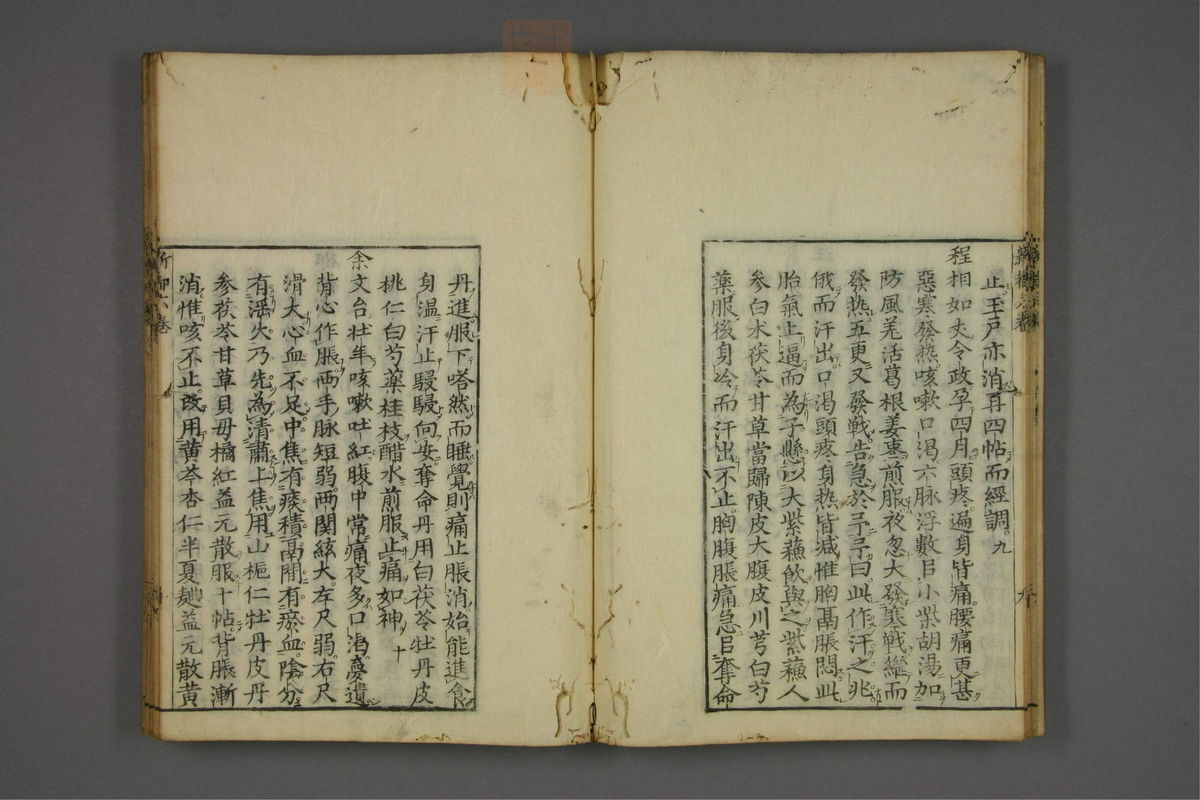 止玉戸亦消再四帖而經調九
程相如丈令政孕四月頭疼遍身皆痛腰痛更甚
惡寒發熱咳嗽口渴六脉浮數㠯小柴胡湯加
防風羗活葛根姜棗煎服夜忽大發寒戦繼而
發热五更又發戦告急於予予曰此作汗之兆
俄而汗出口渴頭疼身热皆减惟胸鬲脹悶此
胎氣上逼而為子懸以大紫蘓飲與之紫蘓人
参白术茯苓甘草當歸陳皮大腹皮川芎白芍
藥服後身冷而汗出不止胸腹脹痛急㠯奪命
丹進服下嗒然而睡覺則痛止脹消始能進食
身温汗止駸駸向安奪命丹用白茯苓牡丹皮
桃仁白芍藥桂枝醋水煎服止痛如神十
余文台壮年咳嗽吐紅腹中常痛夜多口渴夢遺
背心作脹两手脉短弱两関絃大左尺弱右尺
滑大心血不足中焦有痰積鬲間有瘀血陰分
有滛火乃先為清肅上焦用山栀仁牡丹皮丹
参茯苓甘草貝母橘紅益元散服十帖背脹漸
消惟咳不止改用黄芩杏仁半夏麯益元散黄